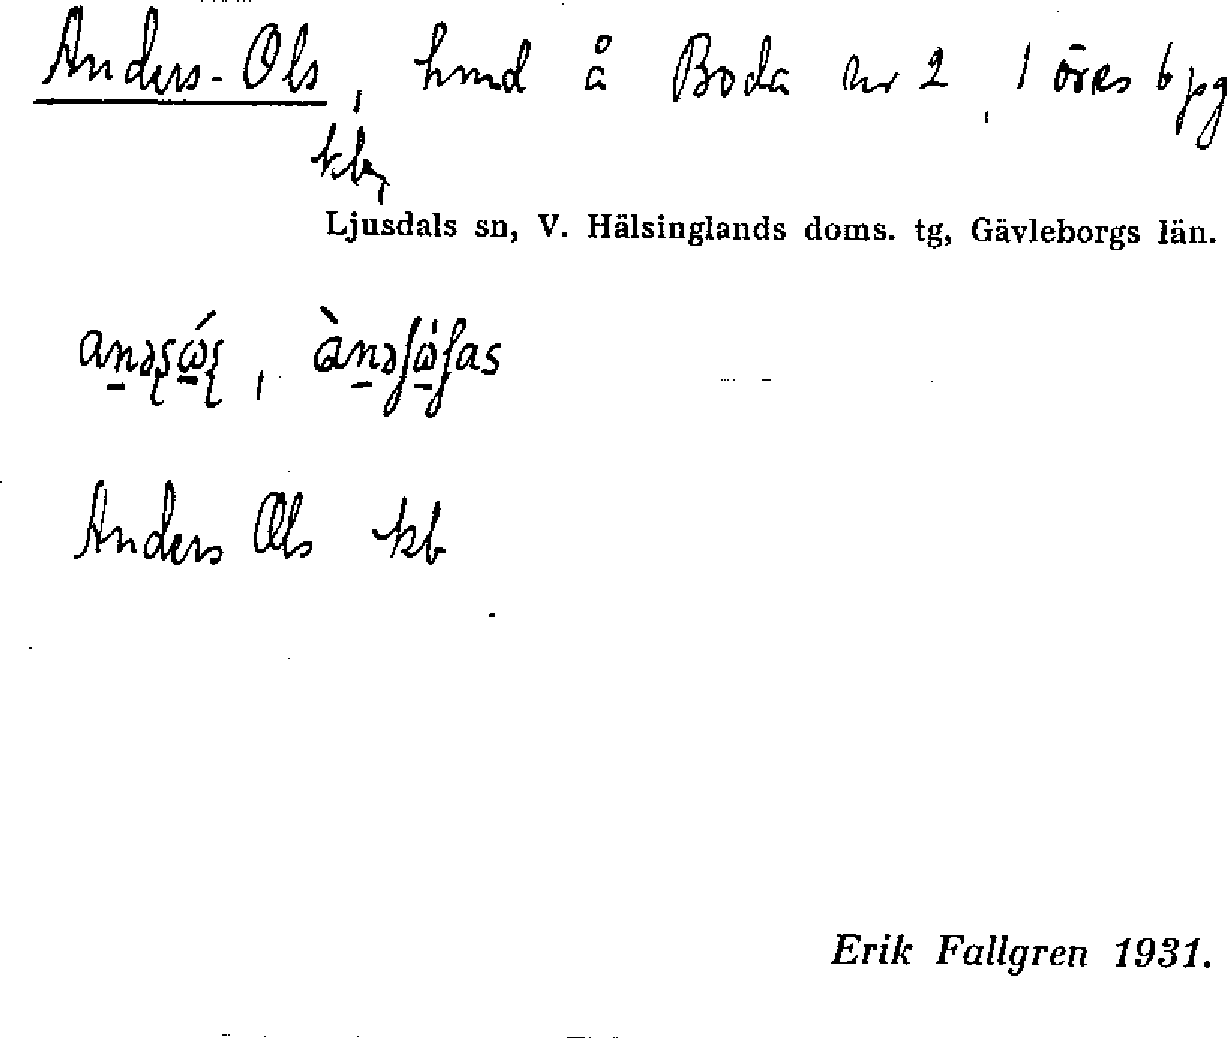 Anders-Ols, hmd å Boda nr 2, 1 öres 6 pg
kb,
Ljusdals sn, V. Hälsinglands doms. tg, Gävleborgs län.
Anders Ols kb
Erik Fallgren 1931.